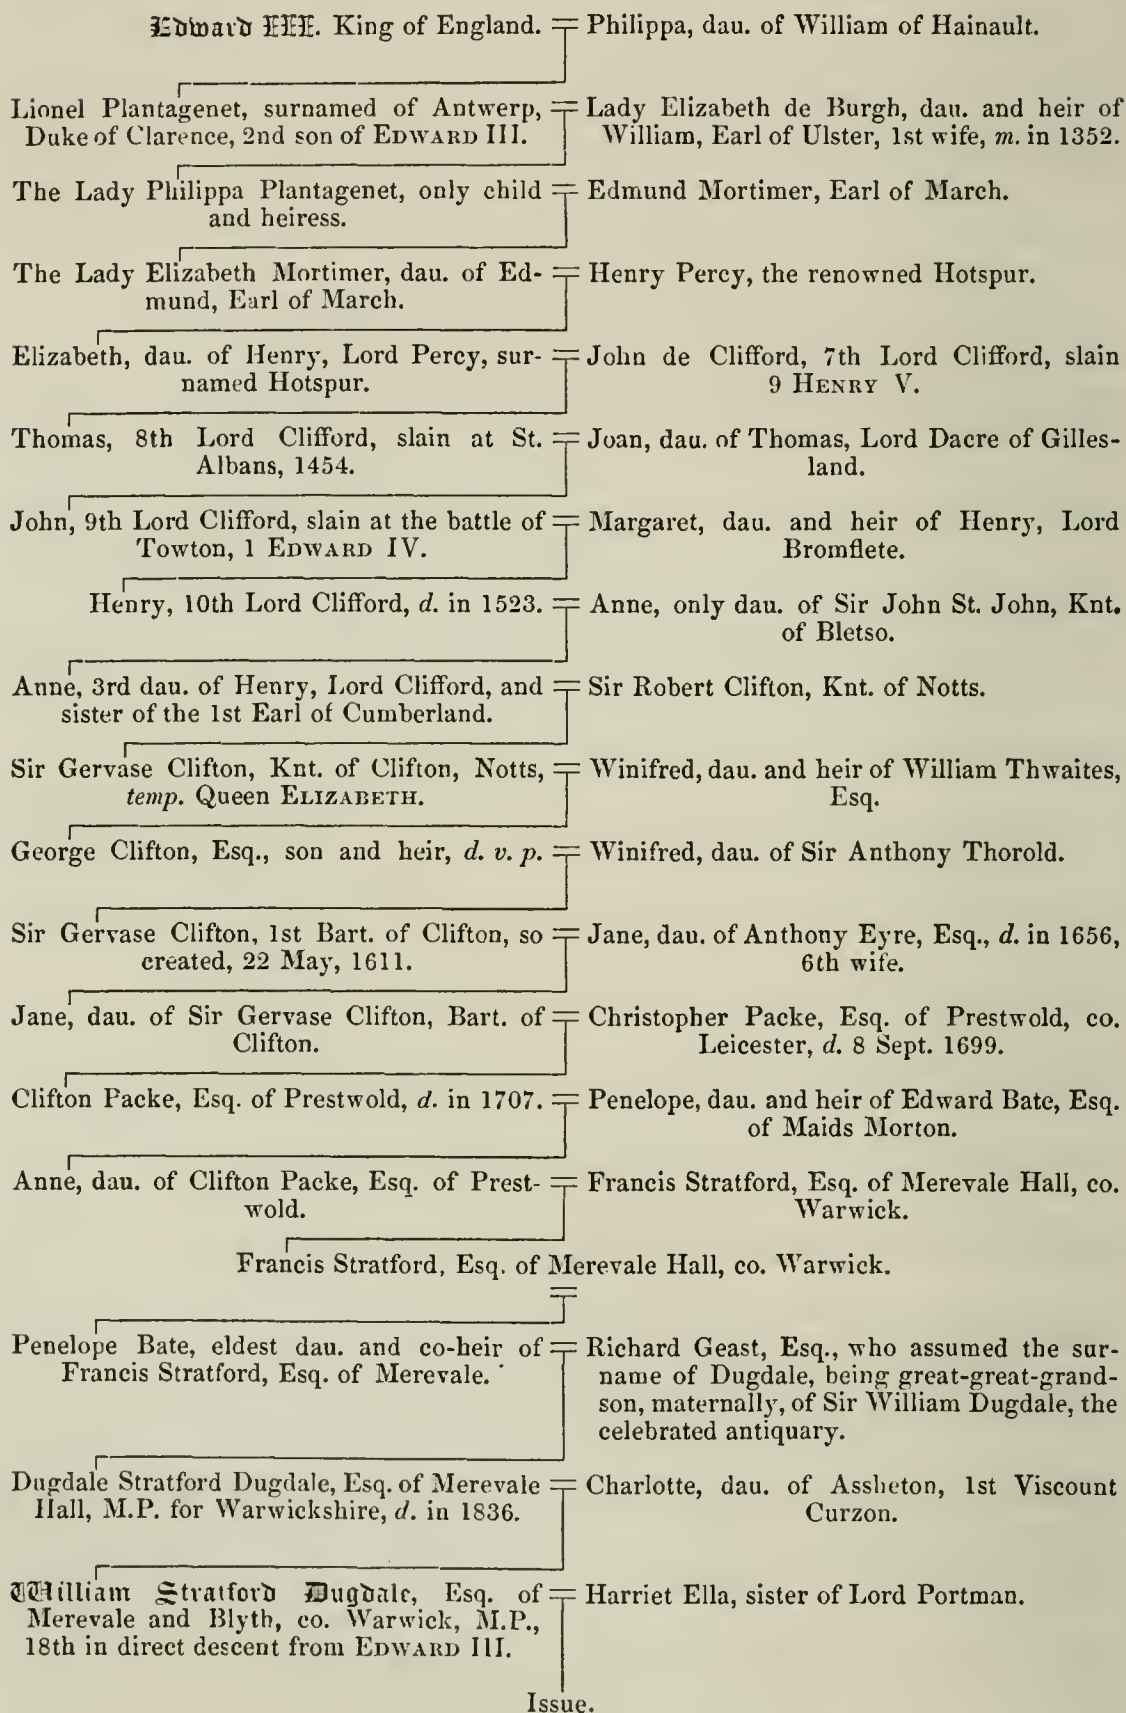 Edward III. King of England. = Philippa, dau. of William of Hainault.
Lionel Plantagenet, surnamed of Antwerp, Duke of Clarence, 2nd son of EDWARD III. = Lady Elizabeth de Burgh, dau. and heir of William, Earl of Ulster, 1st wife, m. in 1352.
The Lady Philippa Plantagenet, only child and heiress. = Edmund Mortimer, Earl of March.
The Lady Elizabeth Mortimer, dau. of Ed-
mund, Earl of March. = Henry Percy, the renowned Hotspur.
Elizabeth, dau. of Henry, Lord Percy, sur-
named Hotspur. = John de Clifford, 7th Lord Clifford, slain
9 HENRY V.
Thomas, 8th Lord Clifford, slain at St.
Albans, 1454. = Joan, dau. of Thomas, Lord Dacre of Gilles-
land.
John, 9th Lord Clifford, slain at the battle of
Towton, 1 EDWARD IV. = Margaret, dau. and heir of Henry, Lord
Bromflete.
Henry, 10th Lord Clifford, d. in 1523. = Anne, only dau. of Sir John St. John, Knt.
of Bletso.
Anne, 3rd dau. of Henry, Lord Clifford, and
sister of the 1st Earl of Cumberland. = Sir Robert Clifton, Knt. of Notts.
Sir Gervase Clifton, Knt. of Clifton, Notts,
temp. Queen ELIZABETH. = Winifred, dau. and heir of William Thwaites,
Esq.
George Clifton, Esq., son and heir, d. v. p. = Winifred, dau. of Sir Anthony Thorold.
Sir Gervase Clifton, 1st Bart. of Clifton, so
created, 22 May, 1611. = Jane, dau. of Anthony Eyre, Esq., d. in 1656,
6th wife.
Jane, dau. of Sir Gervase Clifton, Bart. of
Clifton. = Christopher Packe, Esq. of Prestwold, co.
Leicester, d. 8 Sept. 1699.
Clifton Packe, Esq. of Prestwold, d. in 1707. = Penelope, dau. and heir of Edward Bate, Esq.
of Maids Morton.
Anne, dau. of Clifton Packe, Esq. of Prest-
wold. = Francis Stratford, Esq. of Merevale Hall, co.
Warwick.
Francis Stratford, Esq. of Merevale Hall, co. Warwick.
=
Penelope Bate, eldest dau. and co-heir of
Francis Stratford, Esq. of Merevale. = Richard Geast, Esq., who assumed the sur-
name of Dugdale, being great-great-grand-
son, maternally, of Sir William Dugdale, the
celebrated antiquary.
Dugdale Stratford Dugdale, Esq. of Merevale
Hall, M.P. for Warwickshire, d. in 1836. = Charlotte, dau. of Assheton, 1st Viscount
Curzon.
William Stratford Dugdale, Esq. of
Merevale and Blyth, co. Warwick, M.P.,
18th in direct descent from EDWARD III. = Harriet Ella, sister of Lord Portman.
Issue.